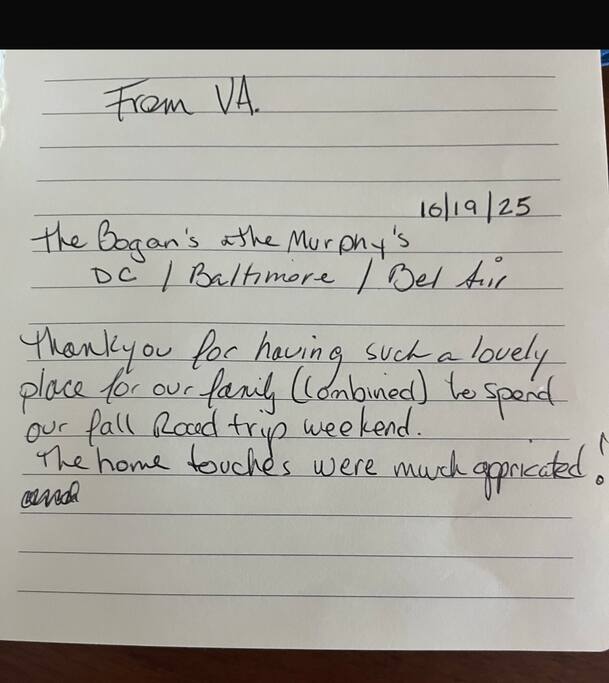 From VA.
10/19/25
The Bogan's & the Murphy's
DC / Baltimore / Bel Air
Thankyou for having such a lovely
place for our family (Combined) to spend
our fall Road trip weekend.
The home touches were much appricated!